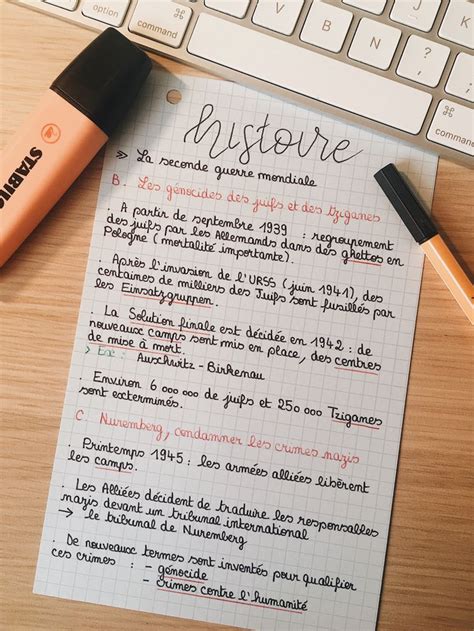 command
option
Z
X
C
V
B
N
M
command
STABILO
histoire
» La seconde guerre mondiale
B. Les génocides des juifs et des tziganes
. A partir de septembre 1939 : regroupement
des juifs par les Allemands dans des ghettos en
Pologne (mortalité importante).
. Après l'invasion de l'URSS (juin 1941), des
centaines de milliers des Juifs sont fusillés par
les Einsatzgruppen.
. La Solution finale est décidée en 1942 : de
nouveaux camps sont mis en place, des centres
de mise à mort.
> Ex : Auschwitz - Birkenau
. Environ 6 000 000 de juifs et 250 000 Tziganes
sont exterminés.
C. Nuremberg, condamner les crimes nazis
. Printemps 1945 : les armées alliées libèrent
les camps.
. Les Alliées décident de traduire les responsables
nazis devant un tribunal international
→ le tribunal de Nuremberg
. De nouveaux termes sont inventés pour qualifier
ces crimes : - génocide
- crimes contre l'humanité